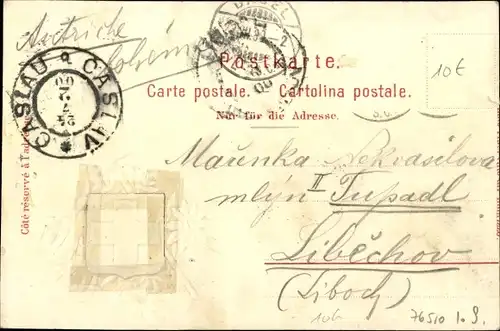 Autriche
Bohême
BASEL
10€
Postkarte.
Carte postale. Cartolina postale.
Nur für die Adresse.
CASLAU ČASLAV
00
Côté réservé à l'adresse.
Mařenka Nekvasilova
mlýn II Tupadl
Liběchov
(Liboch)
106
76510 l. S.